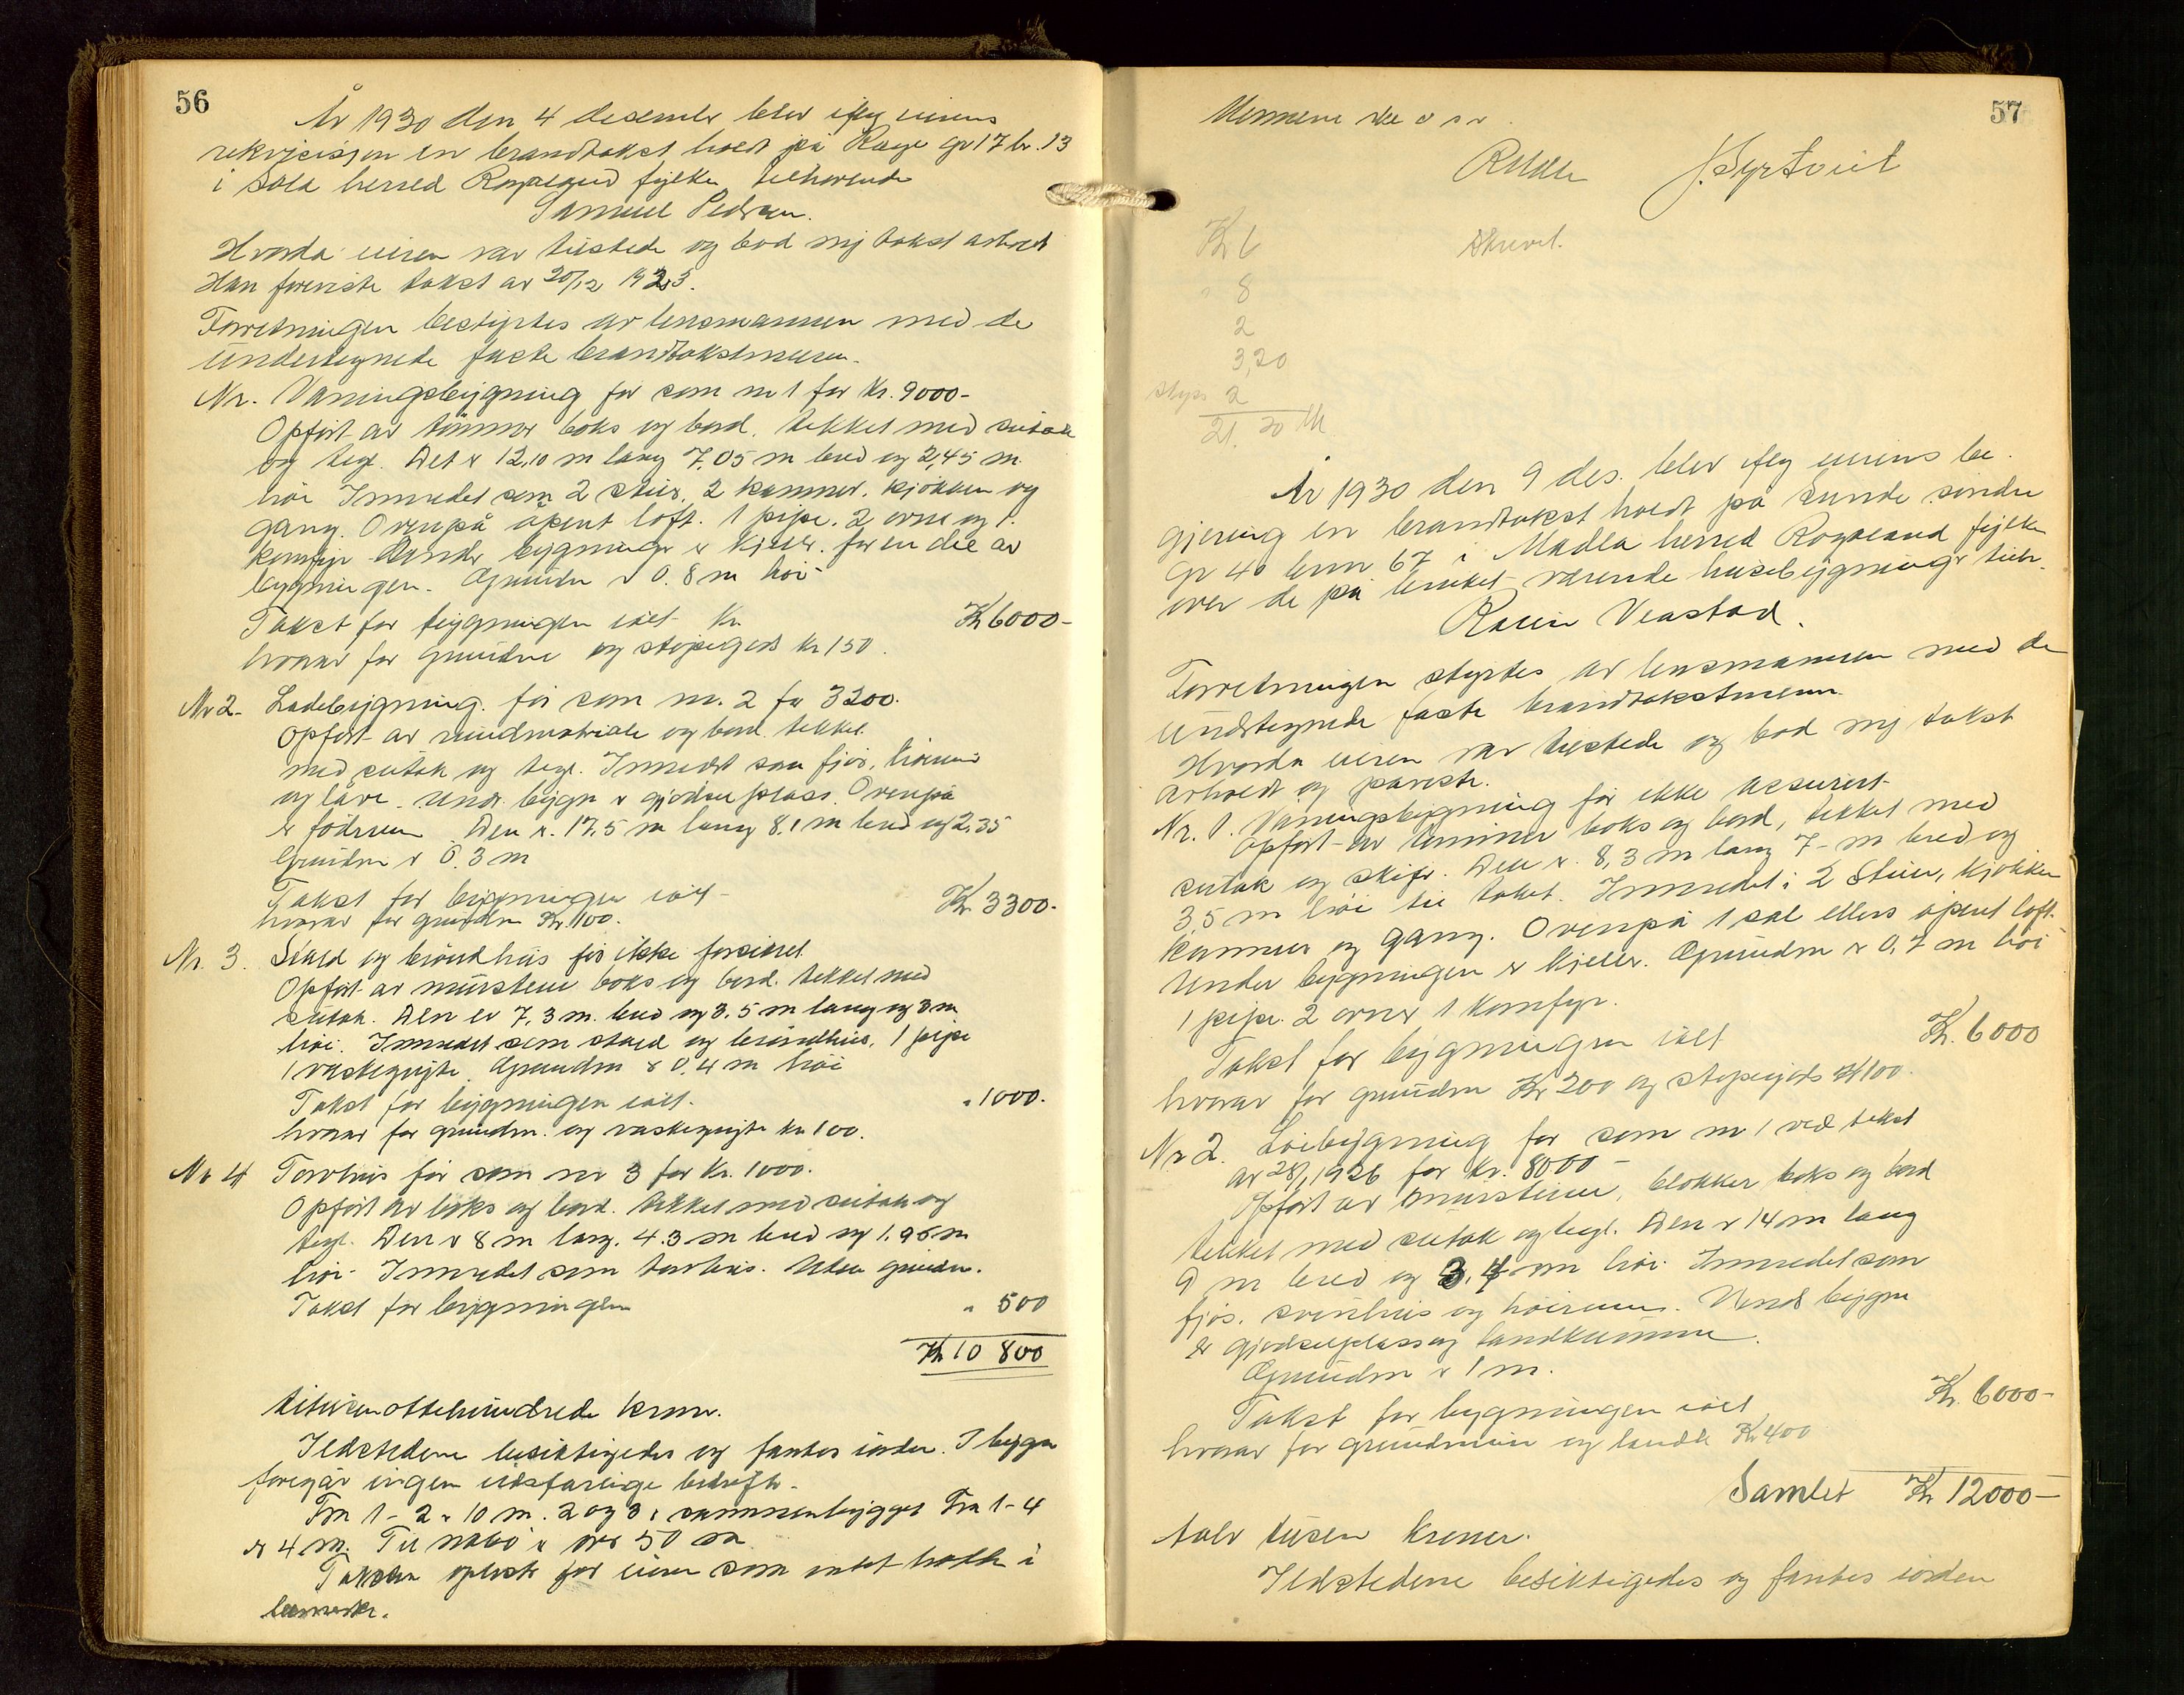 56
År 1930 den 4 desember blev efter eierens
rekvisisjon en brandtakst holdt på Rege gr 17 br. 13
i Sola herred Rogaland fylke tilhørende
Samuel Pedersen.
Hvorda eieren var tilstede og bad ny takst avholdt
Han foreviste takst av 20/12 1923.
Forretningen bestyrtes av lensmannen med de
undertegnede faste brandtakstmenn.
Nr. Vaningsbygning før som nr 1 for Kr. 9000-
Opført av tømmer boks og bord. tekket med sutak
og tegl. Det er 12,10 m lang 7,05 m bred og 2,45 m
høi Innredet som 2 stuer, 2 kammer, kjøkken og
gang. Ovenpå åpent loft. 1 pipe. 2 ovne og 1.
komfyr Under bygningen er kjeller. for en del av
bygningen. Grunden er 0.8 m høi
Takst for bygningen ialt Kr. Kr 6000-
hvorav for grunden og støpegods kr 150.
Nr 2- Ladebygning. før som nr. 2 for 3200.
opført av rundmateriale og bord tekket
med sutak og tegl. Innredet som fjøs, høirum
og låve. under bygn er gjødselplass. Ovenpå
er fôdrum Den er. 17,5 m lang 8,1 m bred og 2,35
Grunden er 0.3 m
Takst for bygningen ialt Kr 3300-
hvorav for grunden Kr. 100.
Nr. 3. Stald og brøndhus før ikke forsikret
Opført av murstene boks og bord. tekket med
sutak. Den er 7,3 m. bred og 3.5 m lang og 3 m
høi. Innredet som stald og brøndhus, 1 pipe
1 vaskegryte. Grunden er 0.4 m høi
Takst for bygningen ialt. " 1000.
hvorav for grunden. og vaskegryte kr 100.
Nr 4 Torvhus før som nr 3 for Kr. 1000.
Opført av boks og bord. tekket med sutak og
tegl. Den er 8 m lang. 4.3 m bred og 1.95 m
høi- Innredet som torvhus. Uten grunden.
Takst for bygningen " 500
Kr 10 800
titusenottehundrede kroner.
Ildstedene besiktigedes og fantes iorden. I bygn
foregår ingen ildsfarlige bedrifter.
Fra 1-2 er 10 m. 2 og 3 er sammenbygget Fra 1-4
er 4 m. Til nabo er over 50 m
Taksten oplæst for eieren som intet hadde i
bemerke.
57
Mennene
J. Syrtveit
Kr 6 Skrevet.
" 8
2
3,20
2
21. 20
År 1930 den 9 des. blev efter eierens be-
gjering en brandtakst holdt på Sunde søndre
gr 40 brnr 67 i Madla herred Rogaland fylke
over de på bruket værende husebygninger tilh.
Rasmus Veastad.
Forretningen styrtes av lensmannen med de
undertegnede faste brandtakstmenn.
Hvorda eieren var tilstede og bad ny takst
avholdt og påviste.
Nr. 1. Vaningsbygning før ikke assurert
Opført av tømmer boks og bord, tekket med
sutak og skifer. Den er 8,3 m lang 7- m bred og
3,5 m høi til taket. Innredet i 2 Stuer, kjøkken
kammer og gang. Ovenpå 1 sal ellers åpent loft.
Under bygningen er kjeller. Grunden er 0,7 m høi
1 pipe. 2 ovner 1 Komfyr.
Takst for bygningen ialt Kr. 6000
hvorav for grunden Kr 200 og støpegods Kr 100.
Nr 2. Løebygning før som nr 1 ved takst
av 28/1 1926 for Kr. 8000-
Opført av murstene, blokker boks og bord
tekket med sutak og tegl. Den er 14 m lang
9 m bred og 3,4 m høi. Innredet som
fjøs, svinhus og høirum. Under bygn
er gjødselplass og landkumme.
Grunden er 1 m.
Takst for bygningen ialt Kr. 6000-
hvorav for grundmur og landk Kr 400
Samlet Kr 12000-
tolv tusen kroner.
Ildstedene besiktigedes og fantes iorden